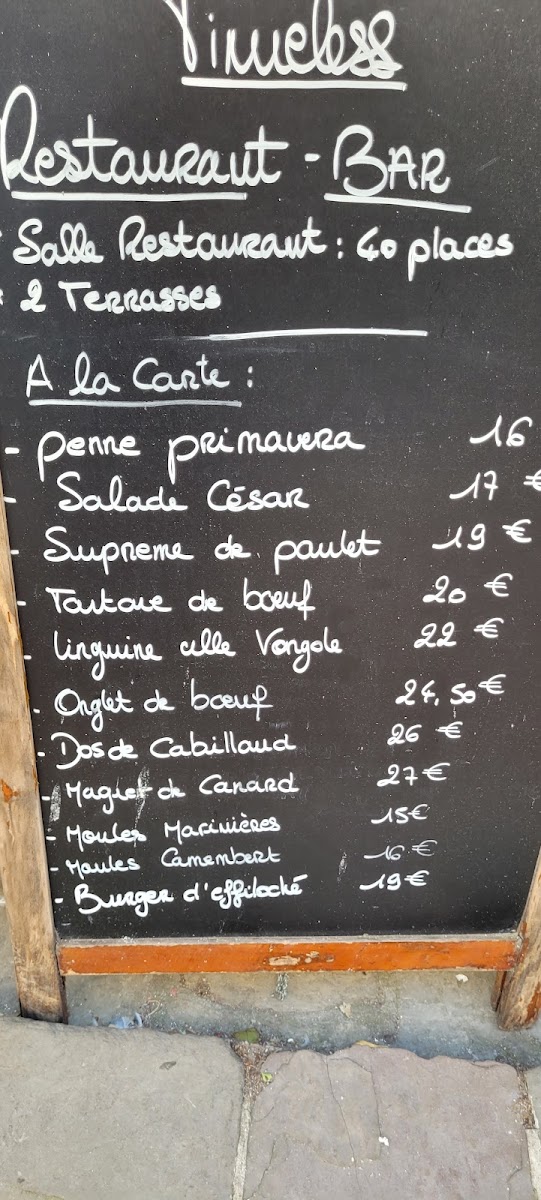 Timeless
Restaurant - BAR
* Salle Restaurant : 40 places
* 2 Terrasses
A la Carte :
- penne primavera 16
- Salade César 17 €
- Supreme de poulet 19 €
- Tartare de bœuf 20 €
- linguine alle Vongole 22 €
- Onglet de bœuf 24,50 €
- Dos de Cabillaud 26 €
- Magret de Canard 27 €
- Moules Marinières 15 €
- Moules Camembert 16 €
- Burger d'effiloché 19 €